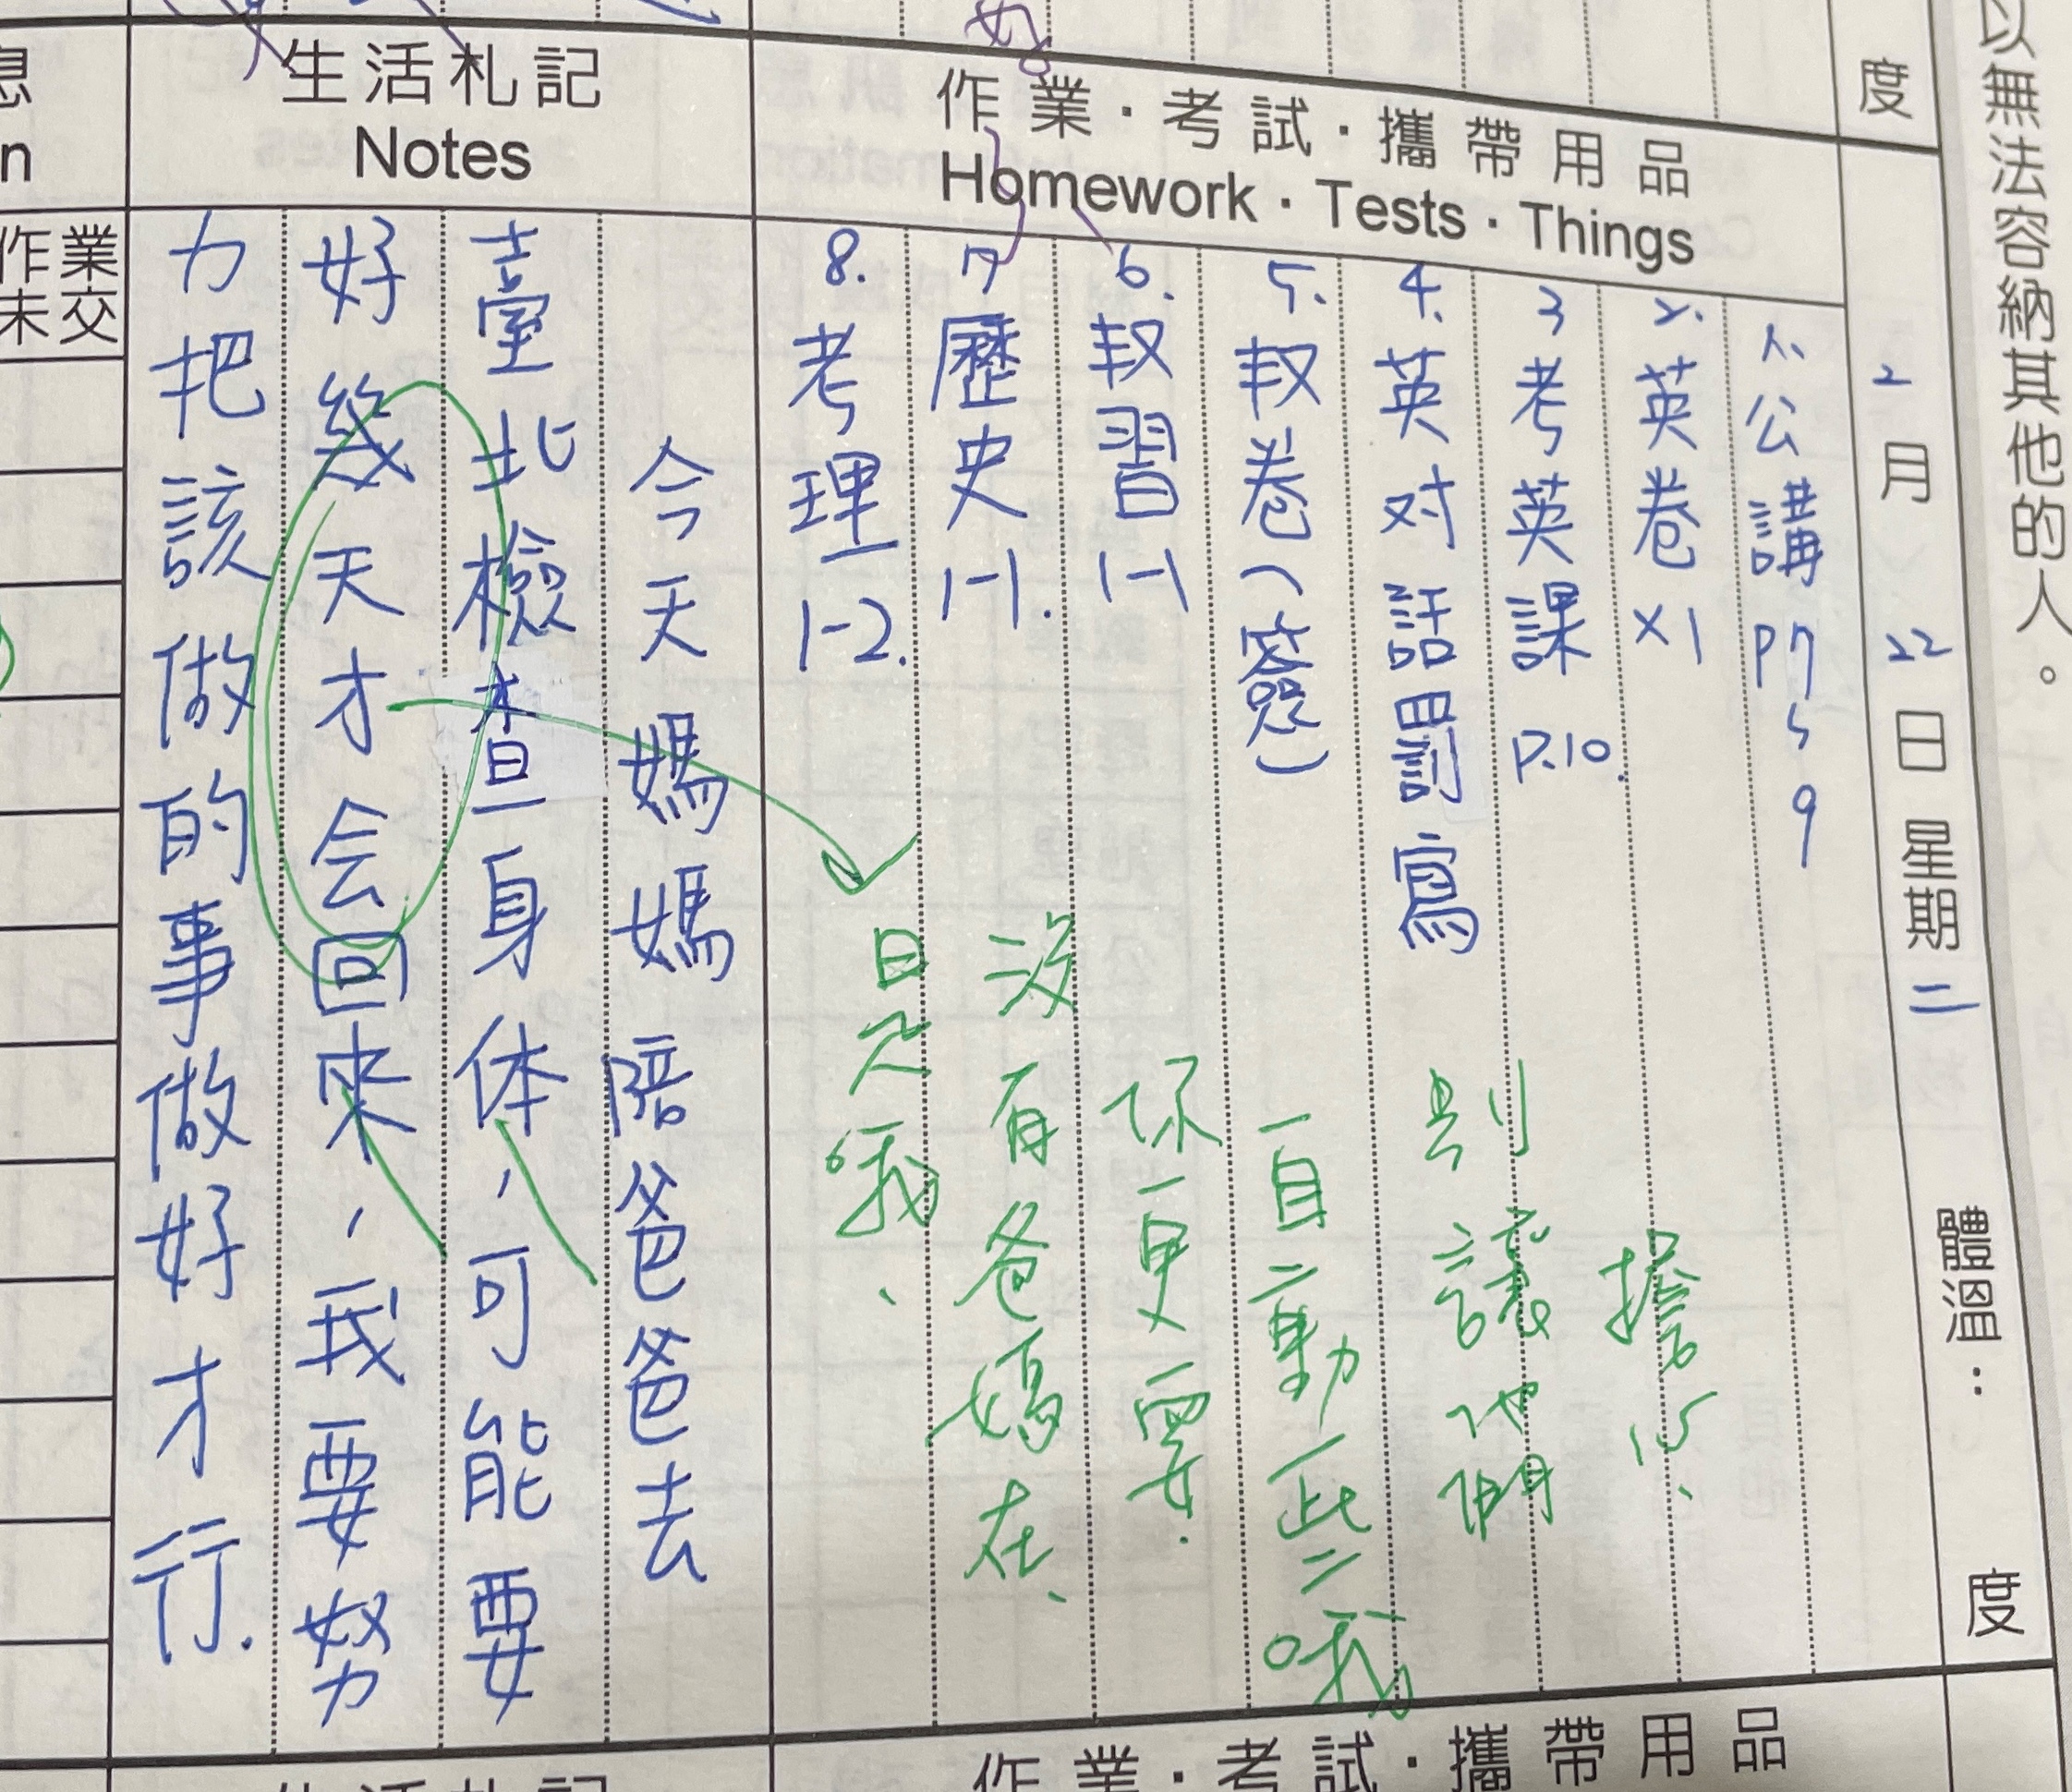 以無法容納其他的人。
度
2月22日星期二 體溫： 度
作業·考試·攜帶用品
Homework·Tests·Things
1.公講P759
2.英卷X1
3考英課P.10.
4.英对話罰寫
5.卷(簽)
6.習1-1
7歷史1-1.
8.考理1-2.
生活札記
Notes
今天媽媽陪爸爸去
臺北檢查身体，可能要
好幾天才会回來，我要努
力把該做的事做好才行.
沒有爸媽在、
你更要.
自動些哦
別讓他們
擔心、
作業
未交
作業·考試·攜帶用品
生活札記